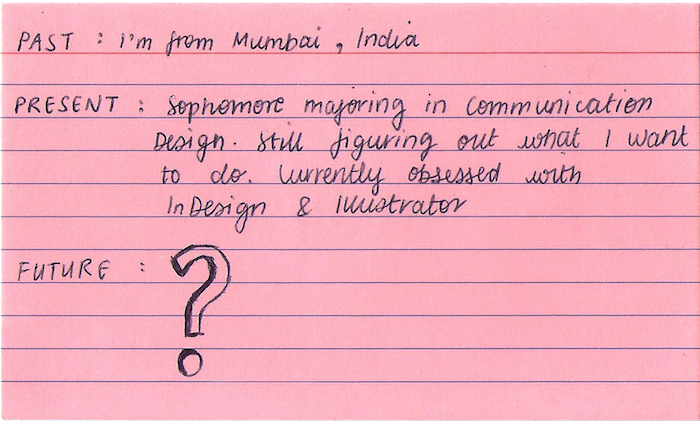 PAST : I'm from Mumbai, India
PRESENT : Sophomore majoring in Communication
Design. Still figuring out what I want
to do. Currently obsessed with
InDesign & Illustrator
FUTURE : ?